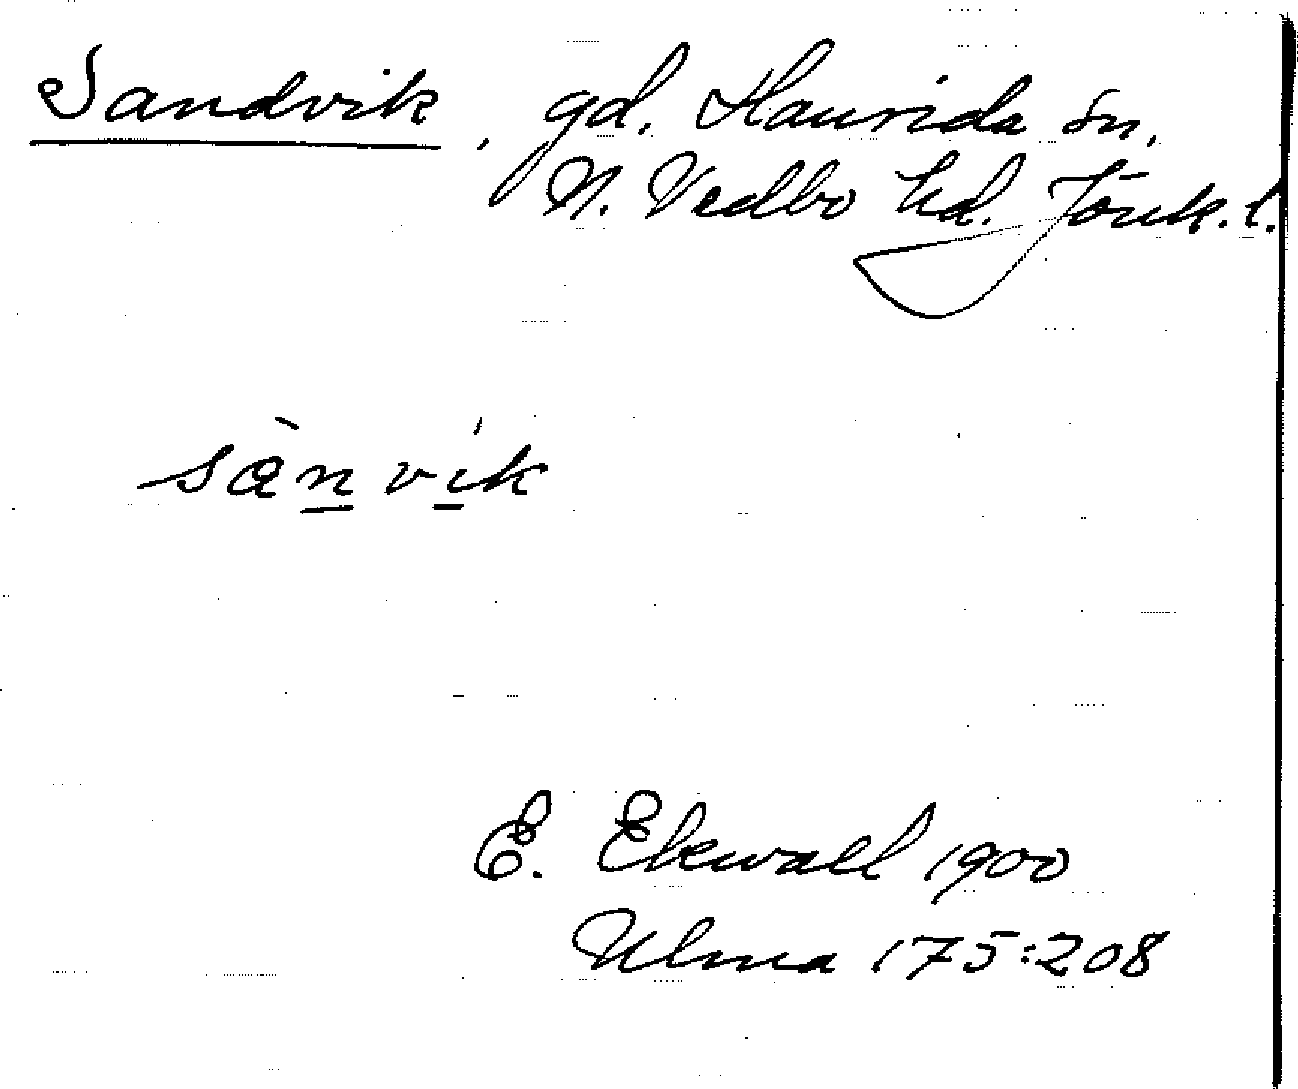 Sandvik, gd. Haurida sn,
N. Vedbo hd. Jönk. l.
sànvík
E. Ekwall 1900
Ulma 175:208